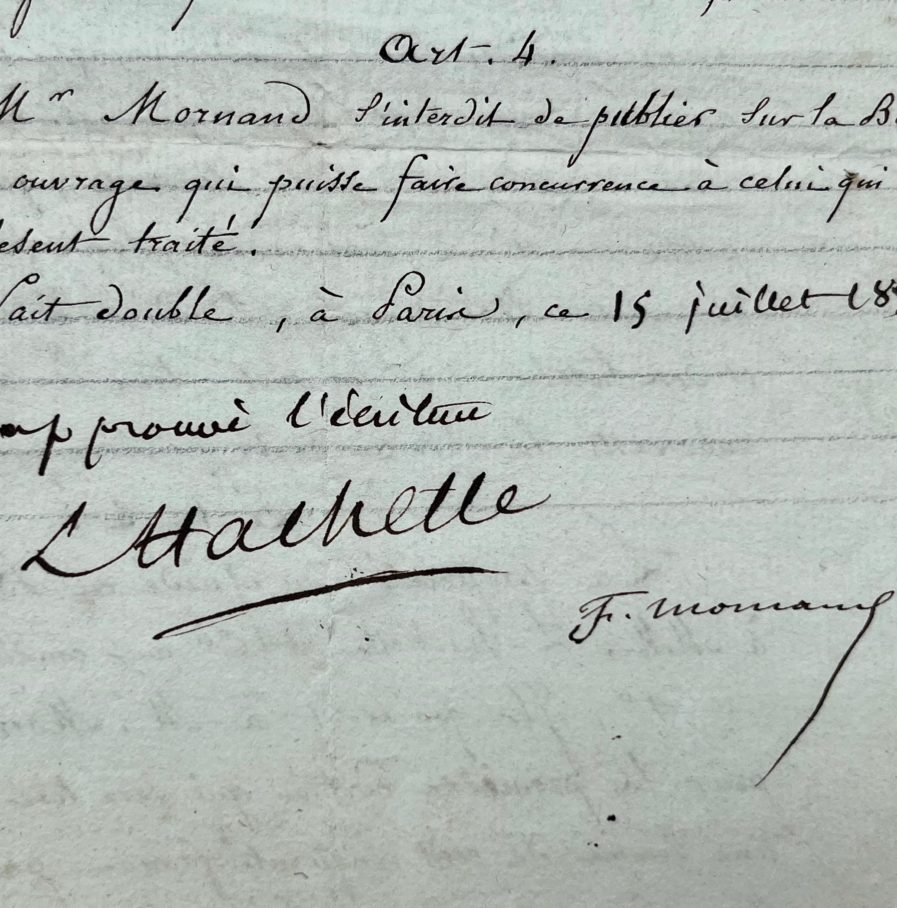 Art. 4.
Mr Mornand s'interdit de publier sur la B
ouvrage qui puisse faire concurrence à celui qui
esent traité.
Fait double, à Paris, ce 15 juillet 18
approuvé l'écriture
L Hachette
F. Mornand